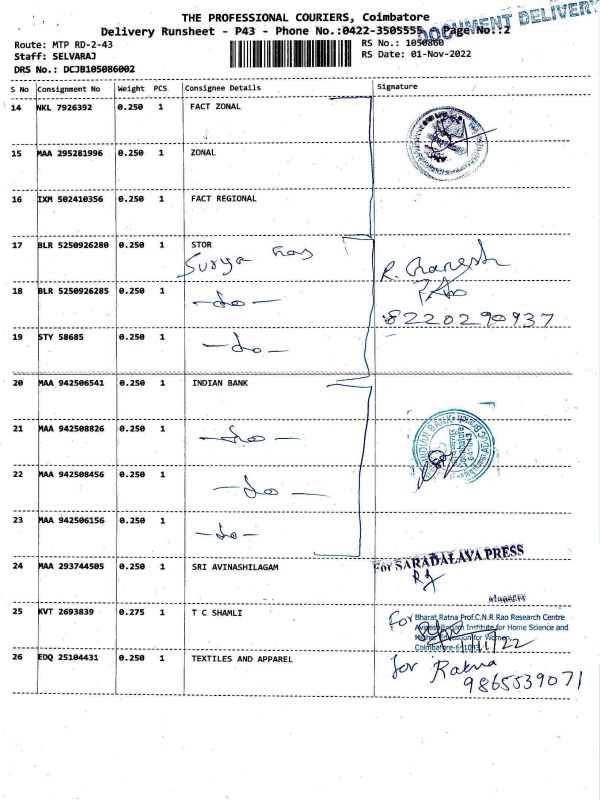 THE PROFESSIONAL COURIERS, Coimbatore
DOCUMENT DELIVERY
Delivery Runsheet - P43 - Phone No.:0422-3505555, Page No.:2
Route: MTP RD-2-43 RS No.: 1050860
Staff: SELVARAJ RS Date: 01-Nov-2022
DRS No.: DCJB105086002
S No Consignment No Weight PCS Consignee Details Signature
14 NKL 7926392 0.250 1 FACT ZONAL
15 MAA 295281996 0.250 1 ZONAL
16 IXM 502410356 0.250 1 FACT REGIONAL
17 BLR 5250926280 0.250 1 STOR
Surya
R. Ganesh
18 BLR 5250926285 0.250 1 -do-
8220290937
19 STY 58685 0.250 1 -do-
20 MAA 942506541 0.250 1 INDIAN BANK
21 MAA 942508826 0.250 1 -do-
INDIAN BANK
22 MAA 942508456 0.250 1 -do-
23 MAA 942506156 0.250 1 -do-
24 MAA 293744505 0.250 1 SRI AVINASHILAGAM
For SARADALAYA PRESS
25 KVT 2693839 0.275 1 T C SHAMLI
For Bharat Ratna Prof.C.N.R Rao Research Centre
Avinashilingam Institute for Home Science and
Higher Education for Women,
Coimbatore-641043
26 EDQ 25104431 0.250 1 TEXTILES AND APPAREL
for Ratna
9865539071